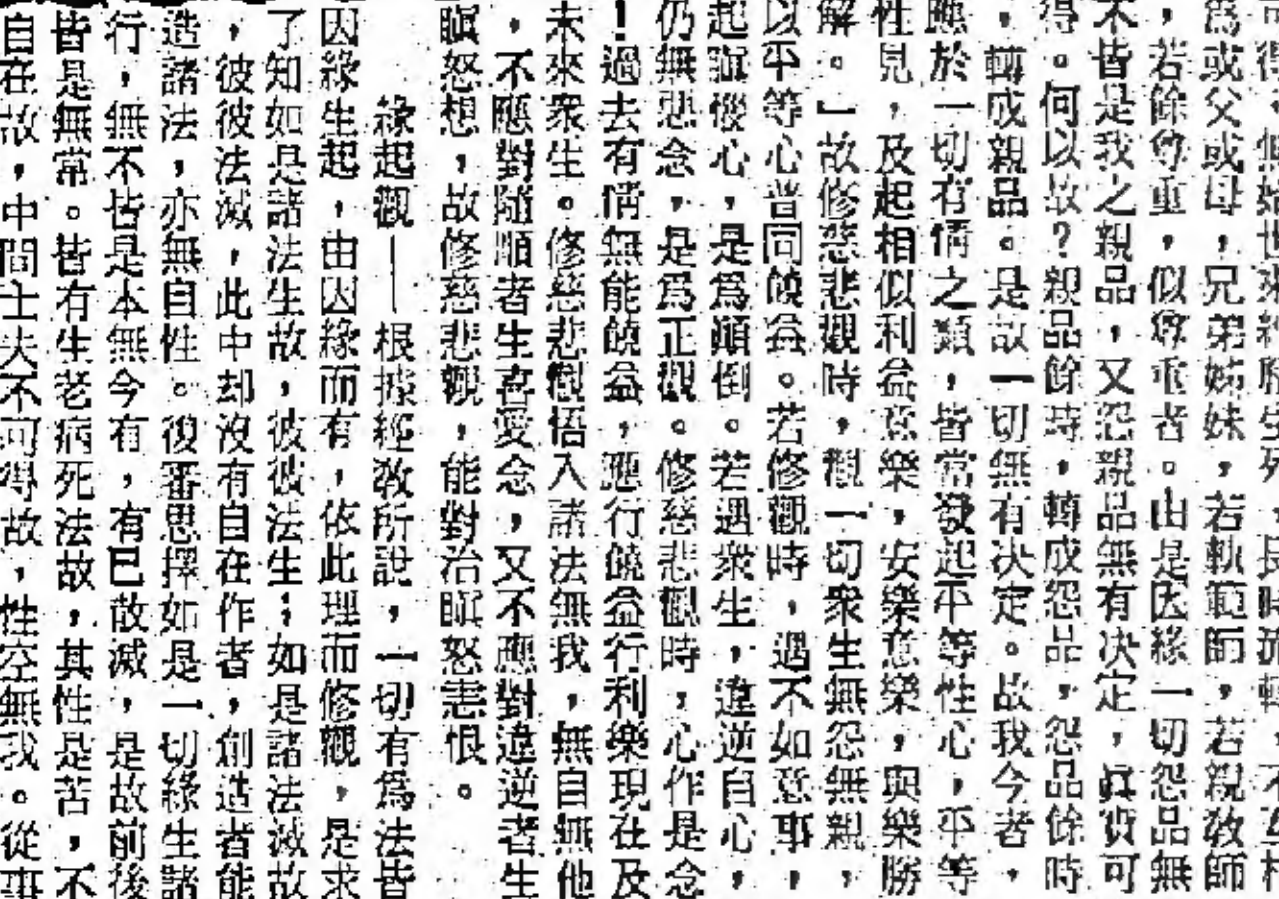 可得。無始世來經歷生死,長時流轉,不互相
爲或父或母,兄弟姊妹,若軌範師,若親教師
,若餘尊重,似尊重者。由是因緣一切怨品無
不皆是我之親品,又怨親品無有決定,眞實可
得。何以故?親品餘時,轉成怨品,怨品餘時
,轉成親品。是故一切無有決定。故我今者,
應於一切有情之類,皆當發起平等性心,平等
性見,及起相似利益意樂,安樂意樂,與樂勝
解。」故修慈悲觀時,觀一切衆生無怨無親,
以平等心普同饒益。若修觀時,遇不如意事,
起瞋恨心,是爲顚倒。若遇衆生,違逆自心,
仍無惡念,是爲正觀。修慈悲觀時,心作是念
!過去有情無能饒益,應行饒益行利樂現在及
未來衆生。修慈悲觀悟入諸法無我,無自無他
,不應對隨順者生喜愛念,又不應對違逆者生
瞋怒想,故修慈悲觀,能對治瞋怒恚恨。
緣起觀——根據經敎所說,一切有爲法皆
因緣生起,由因緣而有,依此理而修觀,是求
了知如是諸法生故,彼彼法生;如是諸法滅故
,彼彼法滅,此中却沒有自在作者,創造者能
造諸法,亦無自性。復審思擇如是一切緣生諸
行,無不皆是本無今有,有已散滅,是故前後
皆是無常。皆有生老病死法故,其性是苦,不
自在故,中間士夫不可得故,性空無我。從事